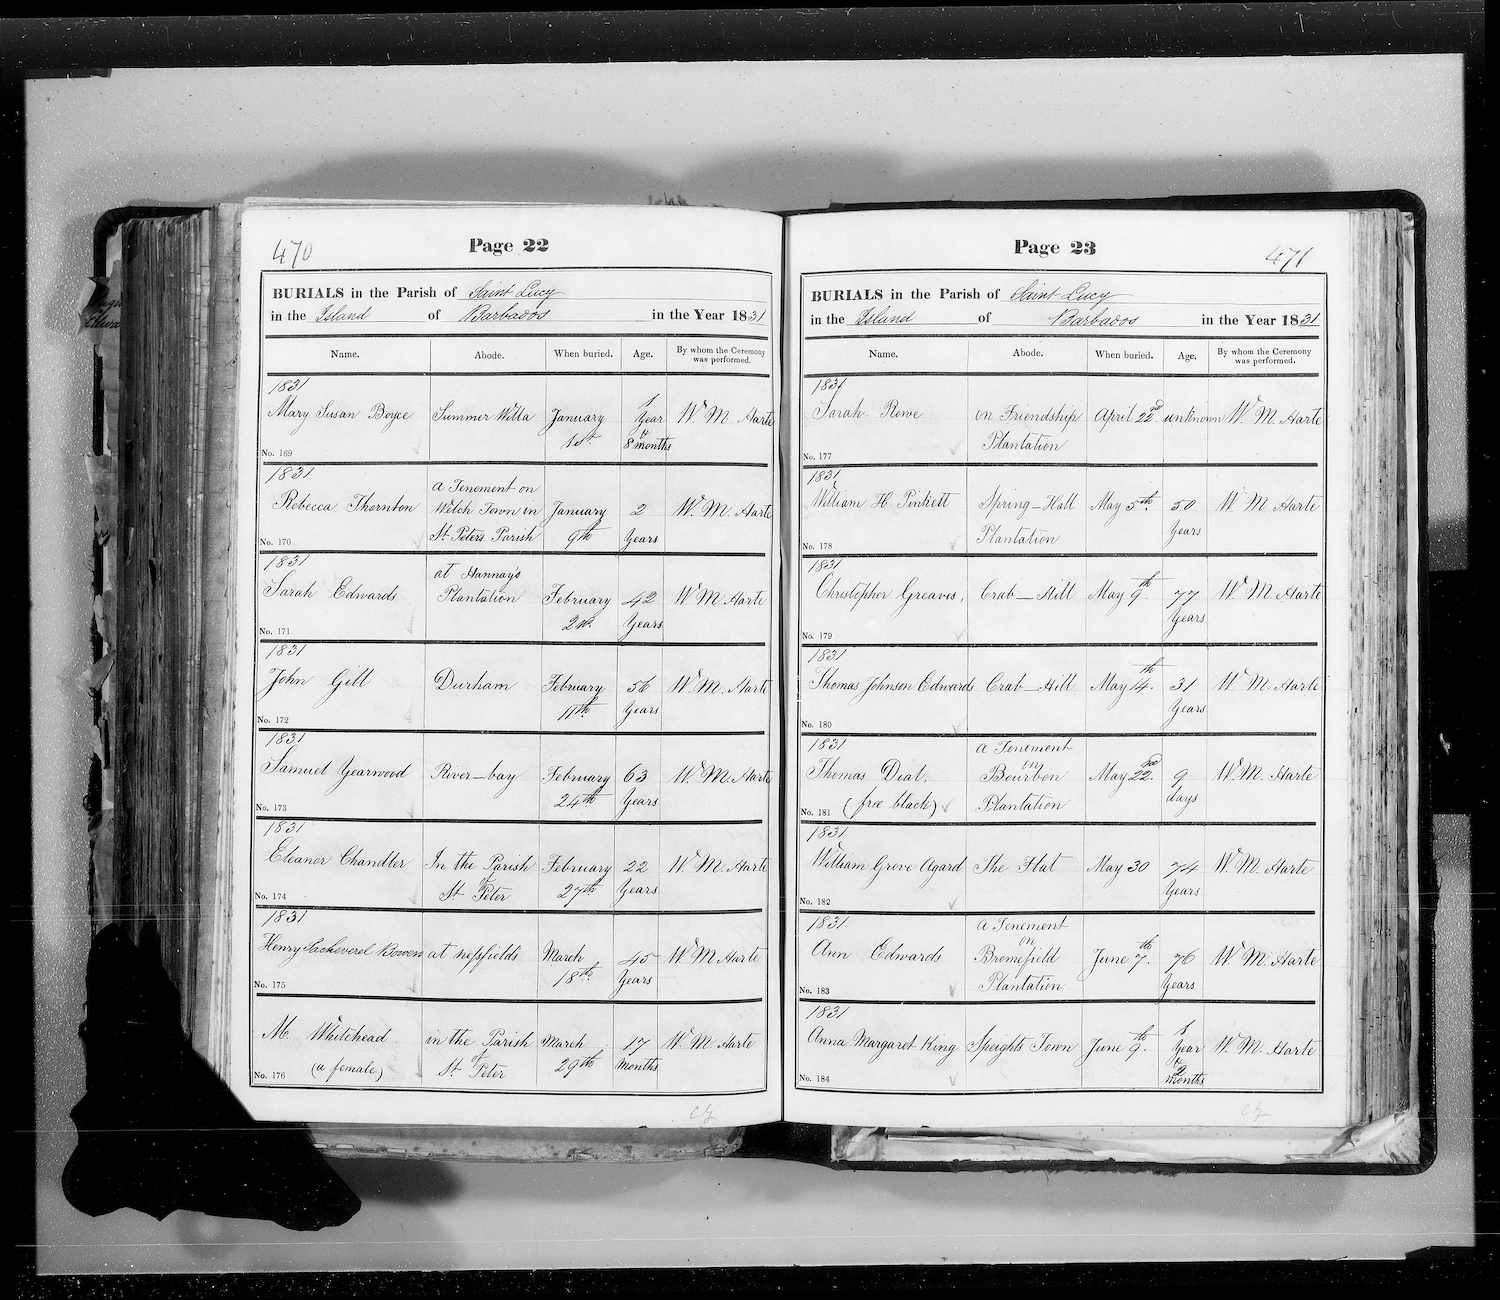 470
Page 22
BURIALS in the Parish of Saint Lucy
in the Island of Barbados in the Year 1831
Name. Abode. When buried. Age. By whom the Ceremony was performed.
1831
Mary Susan Boyce Summer Willa January 1st 1 Year & 8 months W. M. Harte
No. 169
1831
Rebecca Thornton a Tenement on Welch Town in St. Peters Parish January 9th 2 Years W. M. Harte
No. 170
1831
Sarah Edwards at Hannay's Plantation February 2d. 42 Years W. M. Harte
No. 171
1831
John Gill Durham February 11th 56 Years W. M. Harte
No. 172
1831
Samuel Yearwood River-bay February 24th 63 Years W. M. Harte
No. 173
1831
Eleanor Chandler In the Parish of St. Peter February 27th 22 Years W. M. Harte
No. 174
1831
Henry Sacheverel Bowen at nessfields March 18th 45 Years W. M. Harte
No. 175
M. Whitehead in the Parish of St. Peter March 29th 17 Months W. M. Harte
(a female)
No. 176
Page 23
471
BURIALS in the Parish of Saint Lucy
in the Island of Barbados in the Year 1831
Name. Abode. When buried. Age. By whom the Ceremony was performed.
1831
Sarah Rowe on Friendship Plantation April 22nd unknown W. M. Harte
No. 177
1831
William H. Pinkett Spring-Hall Plantation May 5th. 50 Years W. M. Harte
No. 178
1831
Christopher Greaves. Crab-Hill May 9th 77 Years W. M. Harte
No. 179
1831
Thomas Johnson Edwards Crab-Hill May 14th. 31 Years W. M. Harte
No. 180
1831
Thomas Deal. a Tenement on Bourbon Plantation May 22nd. 9 days W. M. Harte
No. 181 (free black)
1831
William Grove Agard The Flat May 30 74 Years W. M. Harte
No. 182
1831
Ann Edwards a Tenement on Bromefield Plantation June 7th. 76 Years W. M. Harte
No. 183
1831
Anna Margaret King Speights Town June 9th. 1 Year & 2 months W. M. Harte
No. 184